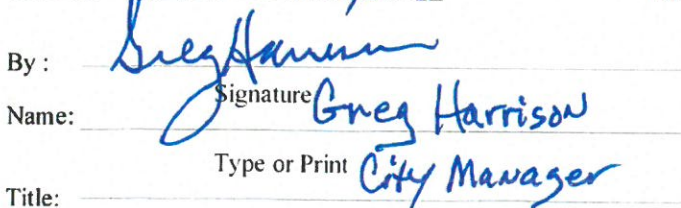 By : Greg Harrison
Signature
Name: Greg Harrison
Type or Print
Title: City Manager